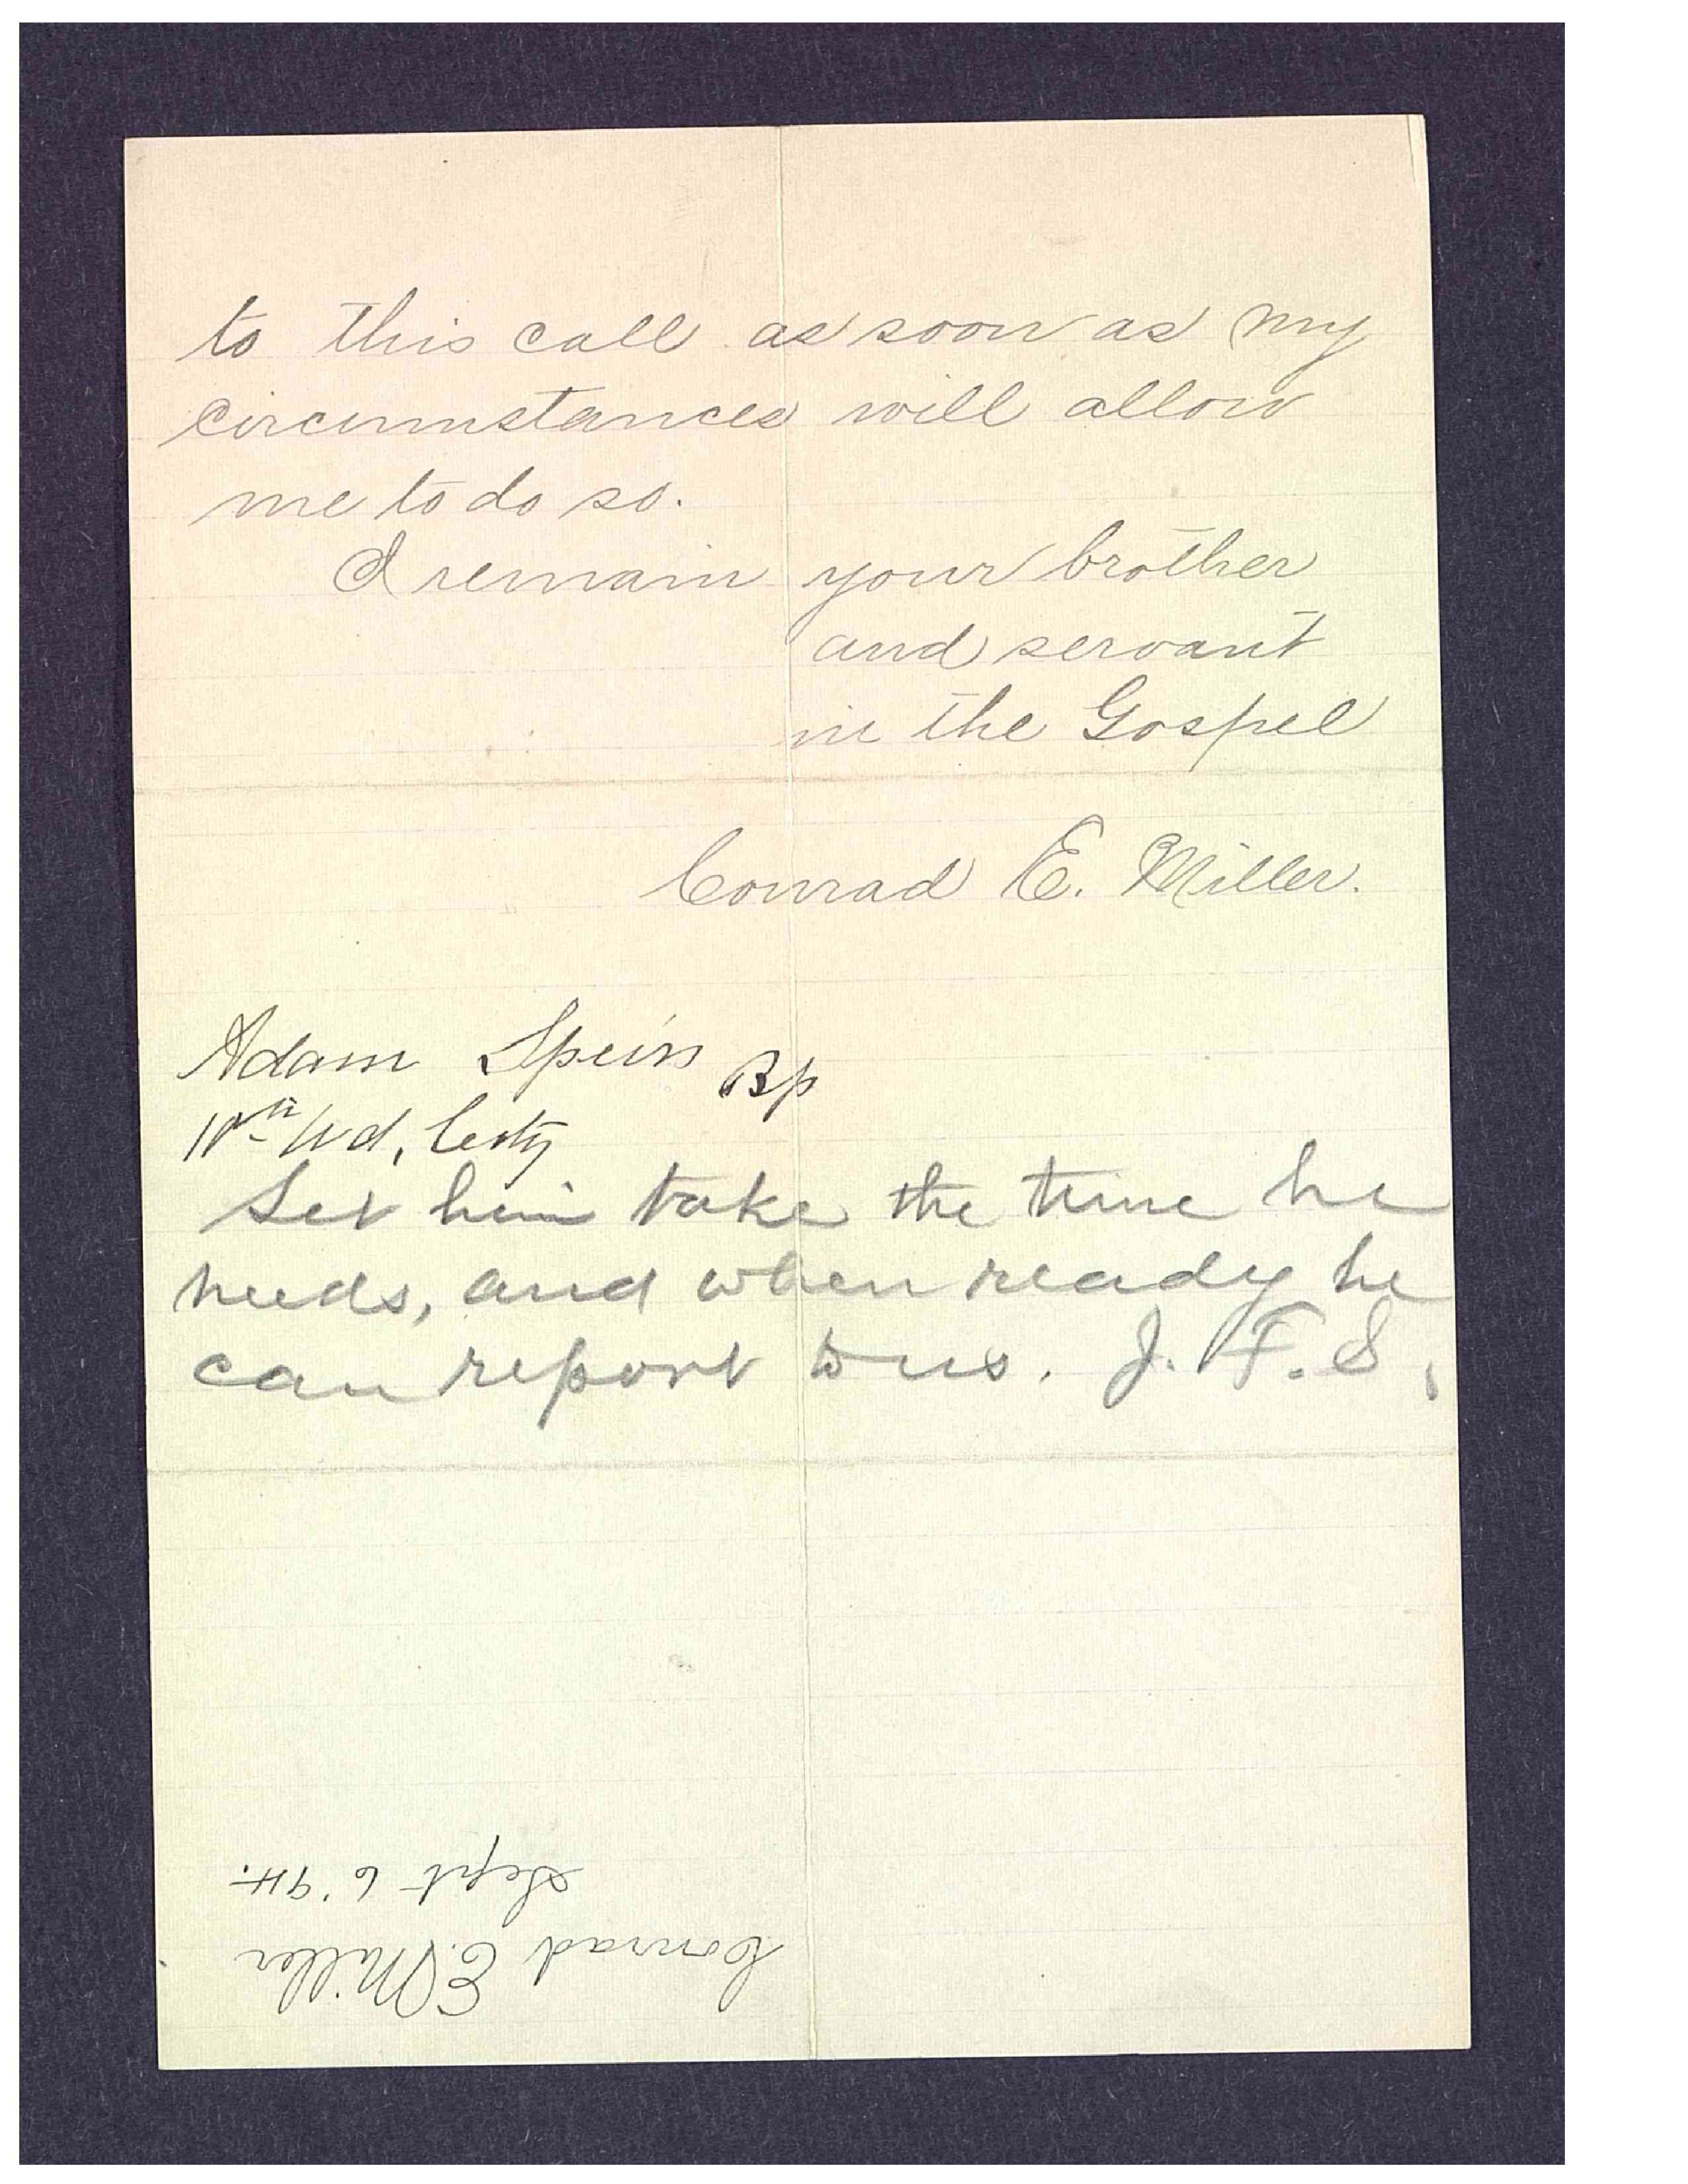 to this call as soon as my
circumstances will allow
me to do so.
I remain your brother
and servant
in the Gospel
Conrad E. Miller.
Adam Speirs Bp
Wd, City
Let him take the time he
needs, and when ready he
can report to us. J. F. S.
Conrad E. Miller
Sept 6 '94.